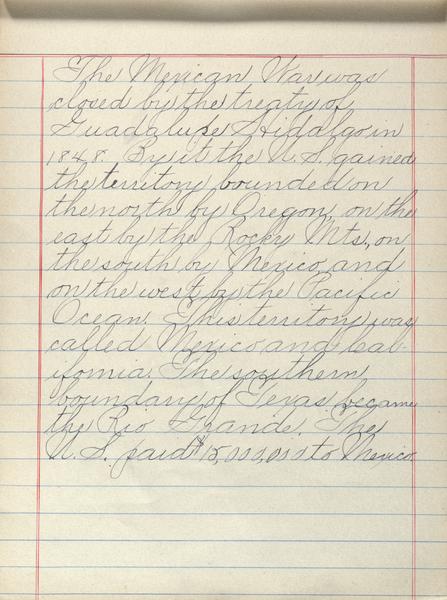 The Mexican War was
closed by the treaty of
Guadalupe Hidalgo in
1848. By it the U.S. gained
the territory bounded on
the north by Oregon, on the
east by the Rocky Mts., on
the south by Mexico, and
on the west by the Pacific
Ocean. This territory was
called Mexico and Cal-
ifornia. The southern
boundary of Texas became
the Rio Grande. The
U.S. paid $15,000,000 to Mexico.